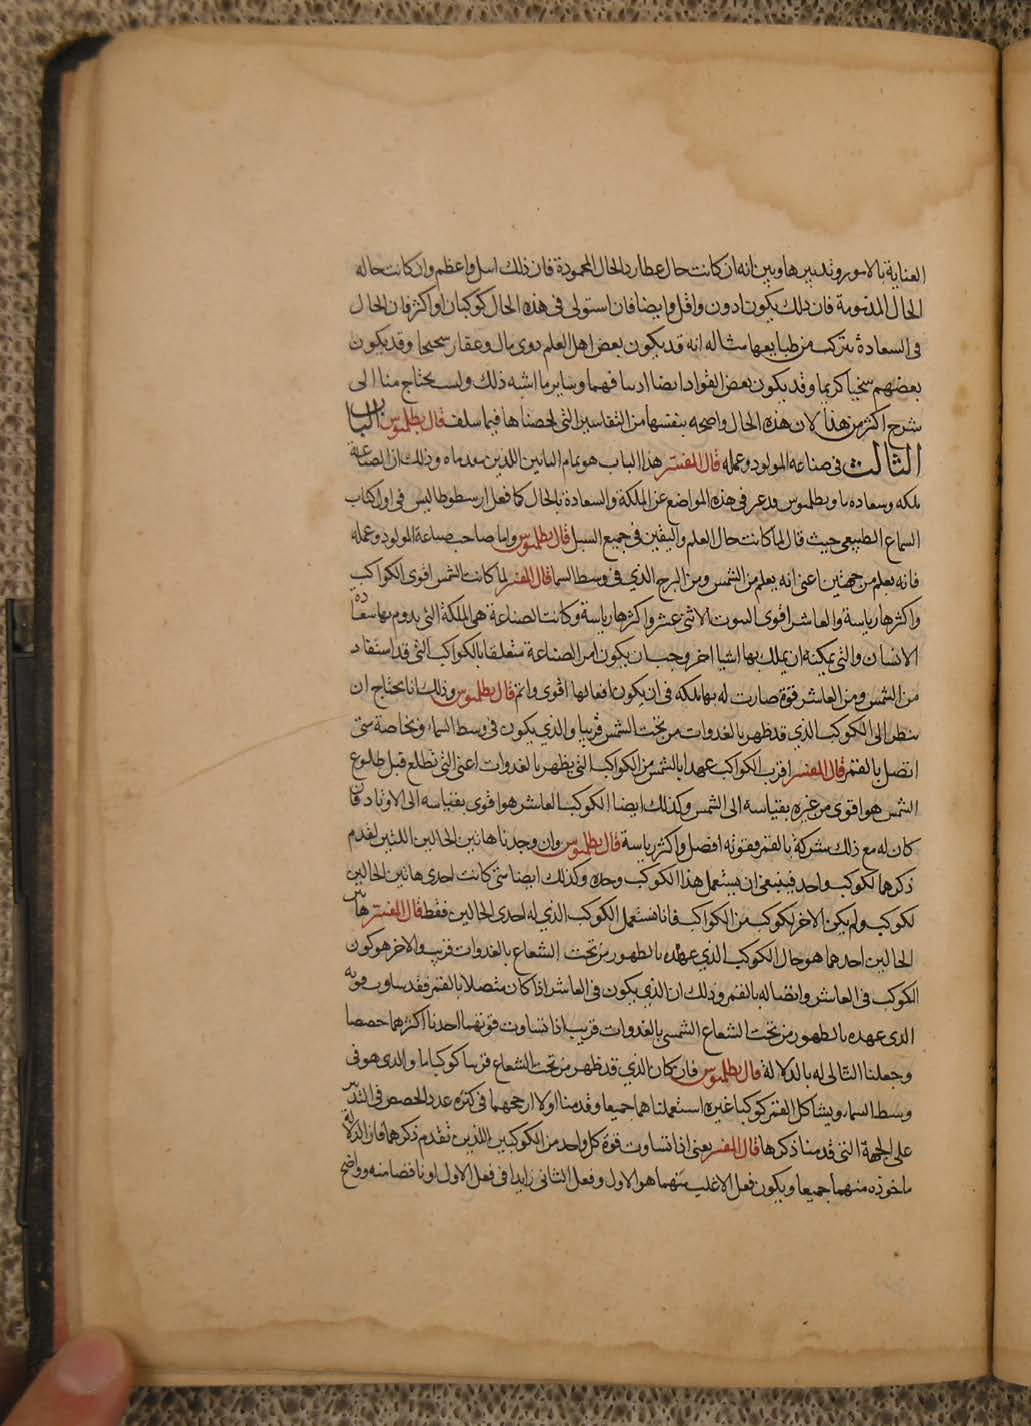 العناية بالامور وتدبيرها وبين انه ان كانت حال عطارد الحال المحمودة فان ذلك اسل واعظم وان كانت حاله
الحال المذمومة فان ذلك يكون ادون واقل وايضا فان استولى فى هذه الحال كوكبان او اكثر فان الحال
فى السعادة تتركب من طبايعها مثاله انه قد يكون بعض اهل العلم ذوى مال وعقار سحيحا وقد يكون
بعضهم سخيا كريما وقد يكون بعض القواد ايضا اديبا فهما وساير ما اشبه ذلك وليس يحتاج منا الى
شرح اكثر من هذا لان هذه الحال واضحه بنفسها من التفاسير التى لخصناها فيما سلف قال بطلميوس الباب
الثالث فى صناعة المولود وعمله قال المفسر هذا الباب هو تمام البابين اللذين تقدماه وذلك ان الصناعة
ملكه وسعاده ما وبطلميوس قد عبر فى هذه المواضع عن الملكة والسعادة بالحال كما فعل ارسطوطاليس فى اول كتاب
السماع الطبيعى حيث قال لما كانت حال العلم واليقين فى جميع السبل قال بطلميوس واما صاحب صناعة المولود وعمله
فانه يعلم من جهتين اعنى انه يعلم من الشمس ومن البرج الذي فى وسط السما قال المفسر لما كانت الشمس اقوى الكواكب
واكثرها رياسة والعاشر اقوى البيوت الاثنى عشر واكثرها رياسة وكانت الصناعة هى الملكة التى يدوم بها سعادة
الانسان والتى يمكنه ان يملك بها اشيا اخر وجب ان يكون امر الصناعة متعلقا بالكواكب التى قد استفاد
من الشمس ومن العاشر قوة صارت له بها ملكه فى ان يكون افعالها اقوى واتم قال بطلميوس وذلك انا نحتاج ان
ننظر الى الكوكب الذي قد ظهر بالغدوات من تحت الشمس قريبا والذي يكون فى وسط السماء وبخاصة متى
اتصل بالقمر قال المفسر اقرب الكواكب عهدا بالشمس من الكواكب التى يظهر بالغدوات اعنى التى تطلع قبل طلوع
الشمس هو اقوى من غيره بقياسه الى الشمس وكذلك ايضا الكوكب العاشر هو اقوى بقياسه الى الاوتاد فان
كان له مع ذلك شركة بالقمر فقوته افضل واكثر رياسة قال بطلميوس وان وجدنا هاتين الحالين اللذين تقدم
ذكرهما لكوكب واحد فينبغى ان يستعمل هذا الكوكب وحده وكذلك ايضا متى كانت احدى هاتين الحالين
لكوكب ولم يكون الاخر لكوكب من الكواكب فانا نستعمل الكوكب الذي له احدى الحالين فقط قال المفسر هاتين
الحالين احدهما هو حال الكوكب الذي عهده بالظهور من تحت الشعاع بالغدوات قريب والاخر هو كون
الكوكب فى العاشر واتصاله بالقمر وذلك ان الذي يكون فى العاشر اذا كان متصلا بالقمر فقد ساوت قوته
الذى عهده بالظهور من تحت الشعاع الشمسى بالغدوات قريب اذا تساوت قوتهما اخذنا اكثرهما حصصا
وجعلنا التالى له بالدلالة قال بطلميوس فان كان الذي قد ظهر من تحت الشعاع قريبا كوكبا ما والذى هو فى
وسط السماء ويشاكل القمر كوكبا غيره استعملناهما جميعا وقدمنا اولا ارجحهما فى كثره عدد الحصص فى التدبير
على الجهة التى قدمنا ذكرها قال المفسر يعنى اذا تساوت قوة كل واحد من الكوكبين اللذين تقدم ذكرهما فان الدلالة
ماخوذه منهما جميعا ويكون فعل الاغلب منهما هو الاول وفعل الثانى زايدا فى فعل الاول او ناقصا منه وواضح